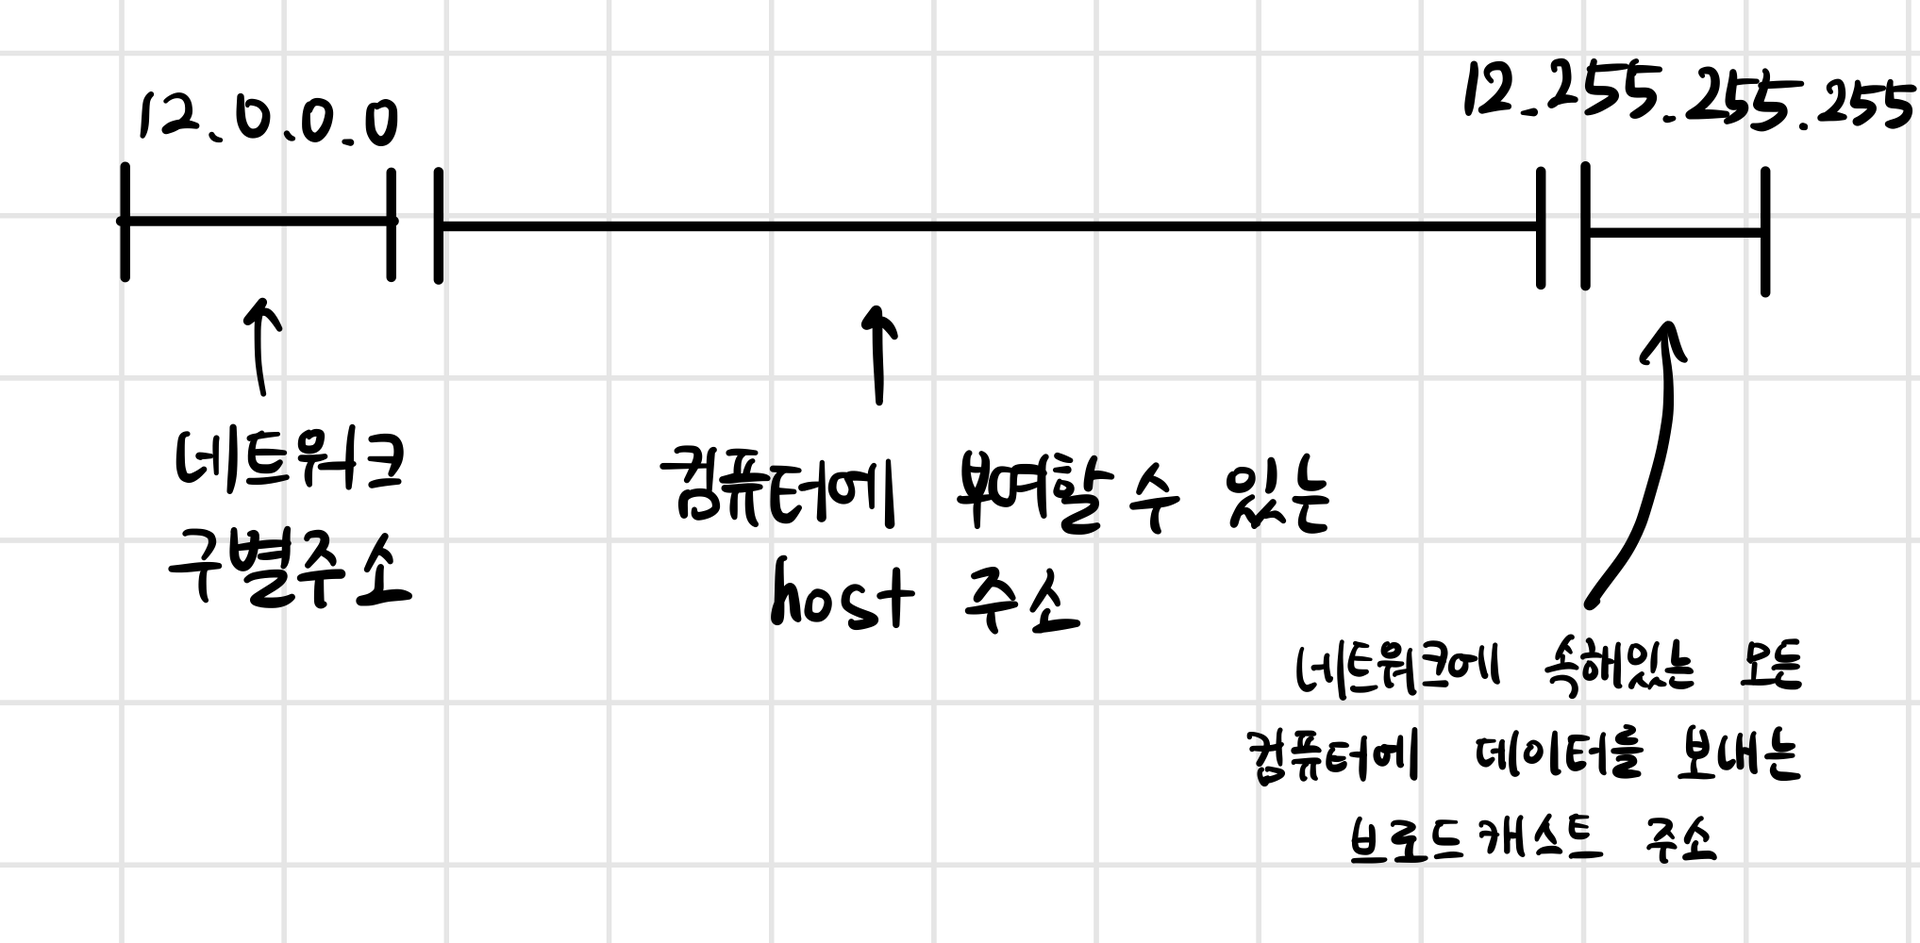 12.0.0.0
12.255.255.255
네트워크
구별주소
컴퓨터에 부여할 수 있는
host 주소
네트워크에 속해있는 모든
컴퓨터에 데이터를 보내는
브로드캐스트 주소